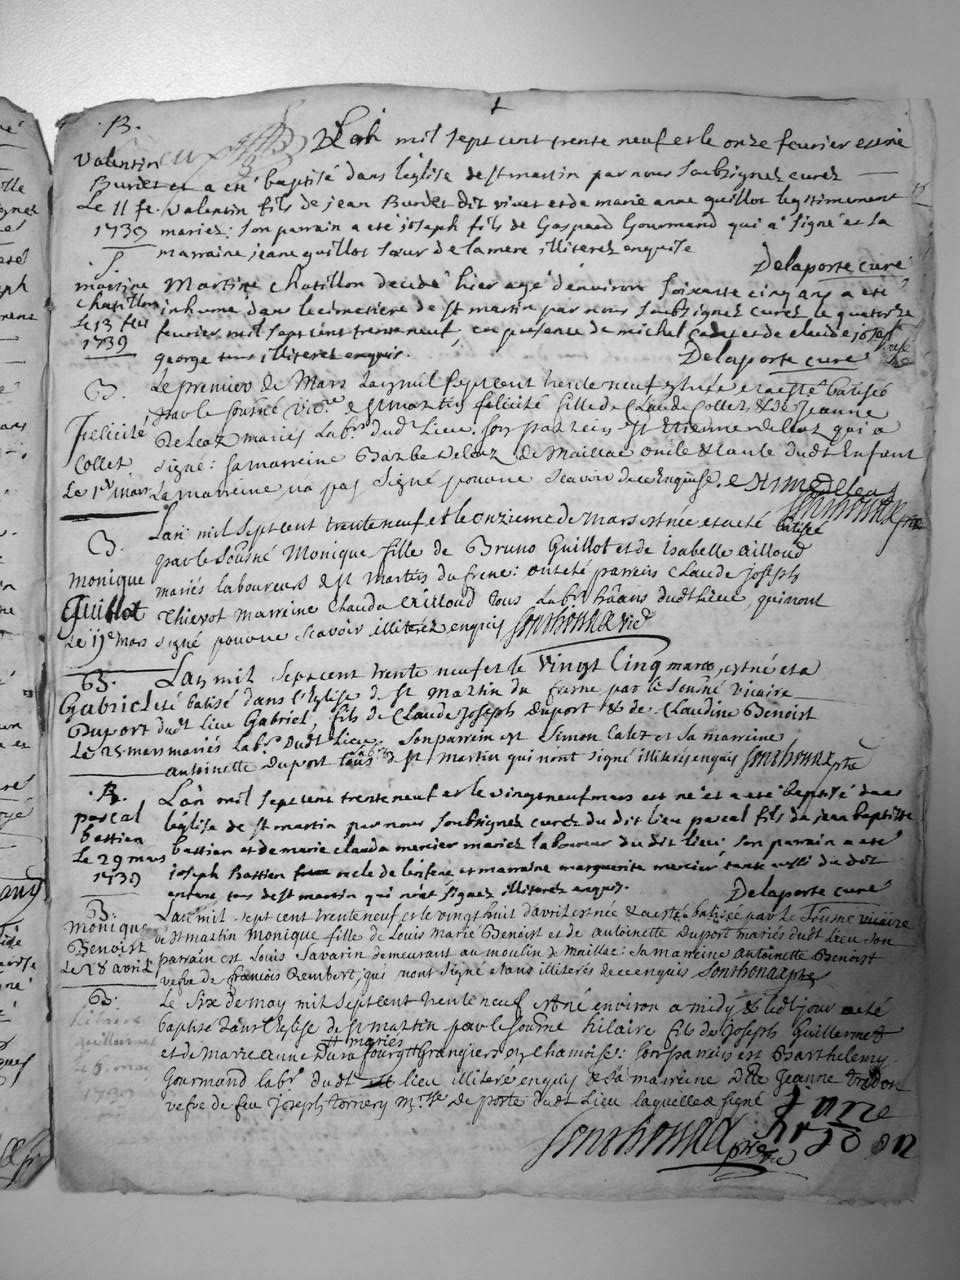 B.
Valentin
Burdet
Le 11 fe.
1739
Lan mil sept cent trente neuf et le onze fevrier est né
et a eté baptisé dans l'église de st martin par nous soubsignez curez
valentin fils de jean Burdet dit vivet et de marie anne guillot legitimement
mariez: son parrain a eté joseph fils de Gaspard Gourmand qui a signé et la
marraine jeane guillot sœur de la mere illiterez enquise
Delaporte curé
S.
martine
chatillon
Le 13 fev
1739
Martine chatillon decedé hier agé d'environ soixante cinq ans a eté
inhumé dans le cimetiere de st martin par nous soubsignez curez le quatorze
fevrier mil sept cent trente neuf, en presence de michel et de claude joseph
george tous illiterez enquis.
Delaporte curé
B.
felicité
Collet
Le 1er mars
Le premier de Mars Lan mil sept cent trente neuf est née et a esté batisée
par le sousné vicre de st martin felicité fille de Claude Collet & de Jeanne
Delaz mariés Labrs dudt Lieu. son parrein st Etienne Delaz qui a
signé: sa marreine Barbe Delaz de Maillac oncle & tante dudt Enfant
La marreine na pas signé pour ne scavoir de ce Enquise. etienne delas
Sonthonnax ptre
B.
monique
Guillot
Le 11e mars
Lan mil sept cent trente neuf et le onzieme de Mars est née et a eté batisée
par le sousné Monique fille de Bruno Guillot et de Isabelle ailloud
mariés laboureurs de st Martin du frene: ont eté parrein Claude Joseph
Thievot marreine Clauda ailloud tous Labrs hâans dudt lieu, qui nont
signé pour ne scavoir illiterez enquis Sonthonnax vic
B.
Gabriel
Duport
Le 25 mars
Lan mil sept cent trente neuf et le vingt cinq mars est né et a
eté batisé dans l'Eglise de st Martin du frene par le sousné vicaire
dudt lieu Gabriel, fils de Claude Joseph Duport & de Claudine Benoist
mariés labrs dudt Lieu: son parrein est Simon Calet et sa marreine
antoinette Duport tous labrs de st Martin qui nont signé illiterés enquis Sonthonnax ptre
B.
pascal
bastien
Le 29 mars
1739
Lan mil sept cent trente neuf et le vingt neuf mars est né et a eté baptisé dans
l'église de st martin par nous soubsignez curez du dit lieu pascal fils de jean baptiste
bastien et de marie clauda mercier mariez laboreur du dit lieu: son parrain a eté
joseph bastien oncle de lenfent et marraine marguerite mercier tante aussi du dit
enfent tous de st martin qui n'ont signez illiterez enquis.
Delaporte curé
B.
monique
Benoist
Le 28 avril
Lan mil sept cent trente neuf et le vingt huit davril est née & a esté batisée par le sousné vicaire
de st martin monique fille de Louis Marie Benoist et de antoinette Duport mariés dudt lieu son
parrain est Louis Savarin demeurant au moulin de Maillac: sa marreine antoinette Benoist
vefve de francois Rembert, qui nont signé etans illiterés de ce enquis Sonthonnax ptre
B.
hilaire
guillermet
Le 6. mai
1739
Le six de may mil sept cent trente neuf est né environ a midy & ledt jour a eté
baptisé dans l'Eglise de st martin par le sousné hilaire fils de Joseph Guillermet
et de Marie anne Durafourgtt mariés Grangiers en Chamoise: son parrein est Barthelemy
Gourmand labr dudt lieu illiteré enquis & sa marreine Dlle Jeanne
vefve de feu Joseph mtre de poste dudt Lieu laquelle a signé
Sonthonnax ptre vic